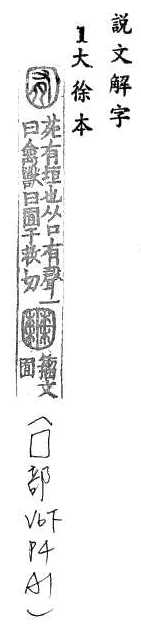 説文解字
1大徐本
囿
苑有垣也从囗有聲一
曰禽獸曰囿于救切
籒文
囿
(囗部
V6下
P4
A1)